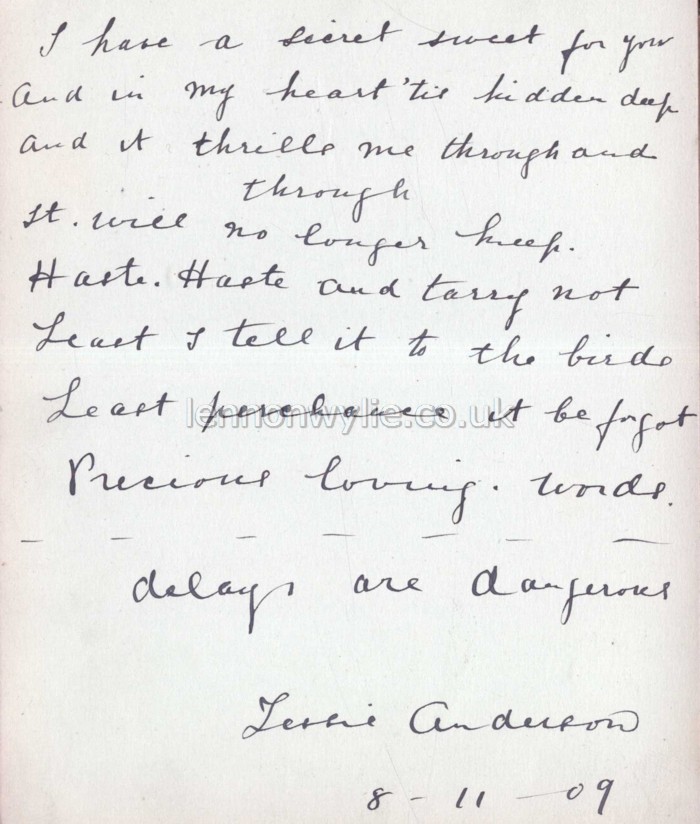 I have a secret sweet for you
And in my heart 'tis hidden deep
And it thrills me through and
through
It. will no longer keep.
Haste. Haste and tarry not
Least I tell it to the birds
Least perchance it be forgot
lennonwylie.co.uk
Precious loving. words.
delays are dangerous
Anderson
8 - 11 - 09